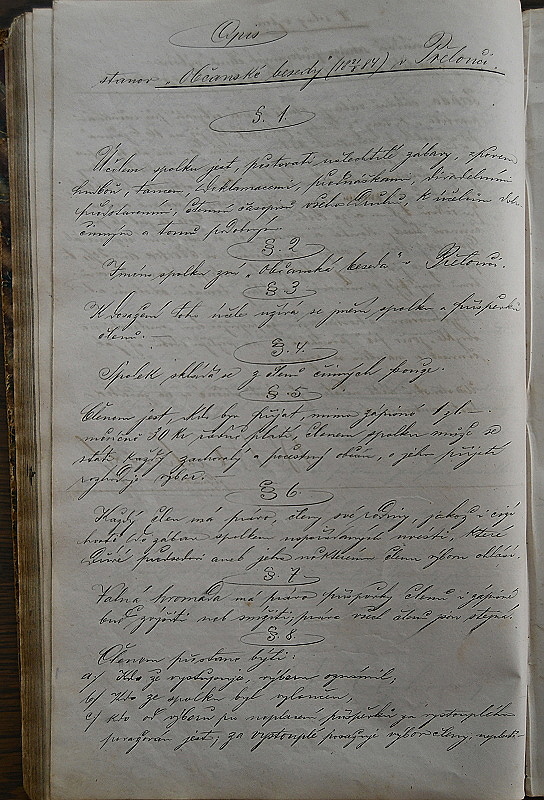 Opis
stanov „Občanské besedy" (1874) v Přelouči.
§. 1.
Účelem spolku jest, pěstovati ušlechtilé zábavy, zpěvem
hudbou, tancem, deklamacemi, přednáškami, divadelními
představeními, čtením časopisů všeho druhu, k účelům dobro-
činným a tomu podobným.
§. 2.
Jméno spolku zní „Občanská beseda" v Přelouči.
§. 3
K dosažení toho účele užívá se jmění spolku a příspěvků
členů. —
§. 4.
Spolek skládá se z členů činných pouze.
§. 5
Členem jest, kdo byv přijat, mimo zápisné 1 zl. —
měsíčně 30 kr. platí. Členem spolku může se
státi každý zachovalý a počestný občan, o jeho přijetí
rozhoduje výbor. —
§. 6.
Každý člen má právo, členy své rodiny, jakož i cizí
hosti do zábav spolkem uvésti, které
dříve předsedovi aneb jeho některému členu výboru ohlásí.
§. 7
Valná hromada má právo příspěvky členů i zápisné
buď zvýšiti neb snížiti; práva všech členů jsou stejná.
§. 8.
Členem přestane býti:
a) Kdo že vystupuje, výboru oznámil,
b) Kdo ze spolku byl vyloučen,
c) kdo od výboru pro neplacení příspěvků za vystouplého
považován jest; za vystouplé považuje výbor členy,